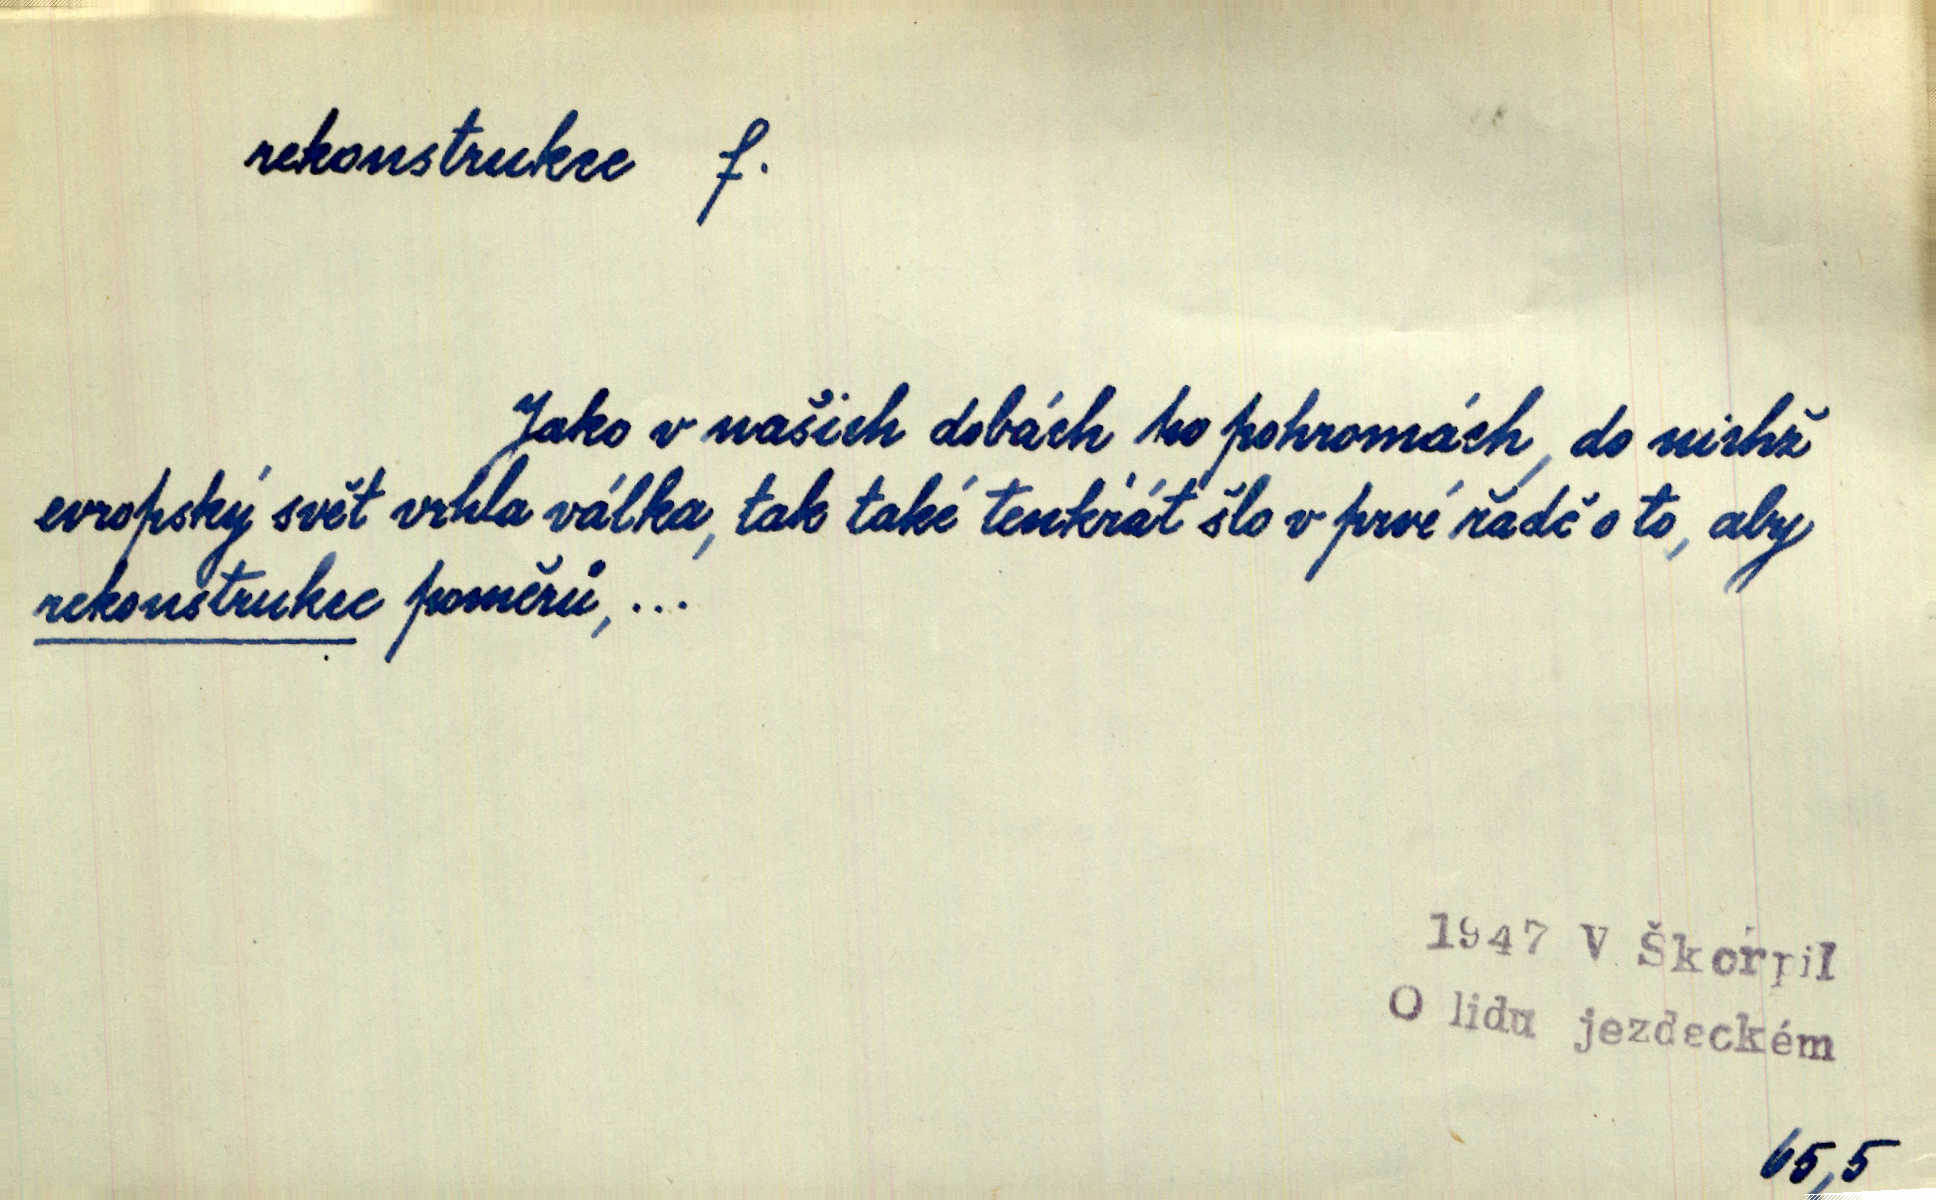 rekonstrukce f.
Jako v našich dobách po pohromách, do nichž
evropský svět vrhla válka, tak také tenkrát šlo v prvé řadě o to, aby
rekonstrukce poměrů, ...
1947 V Škorpil
O lidu jezdeckém
65,5